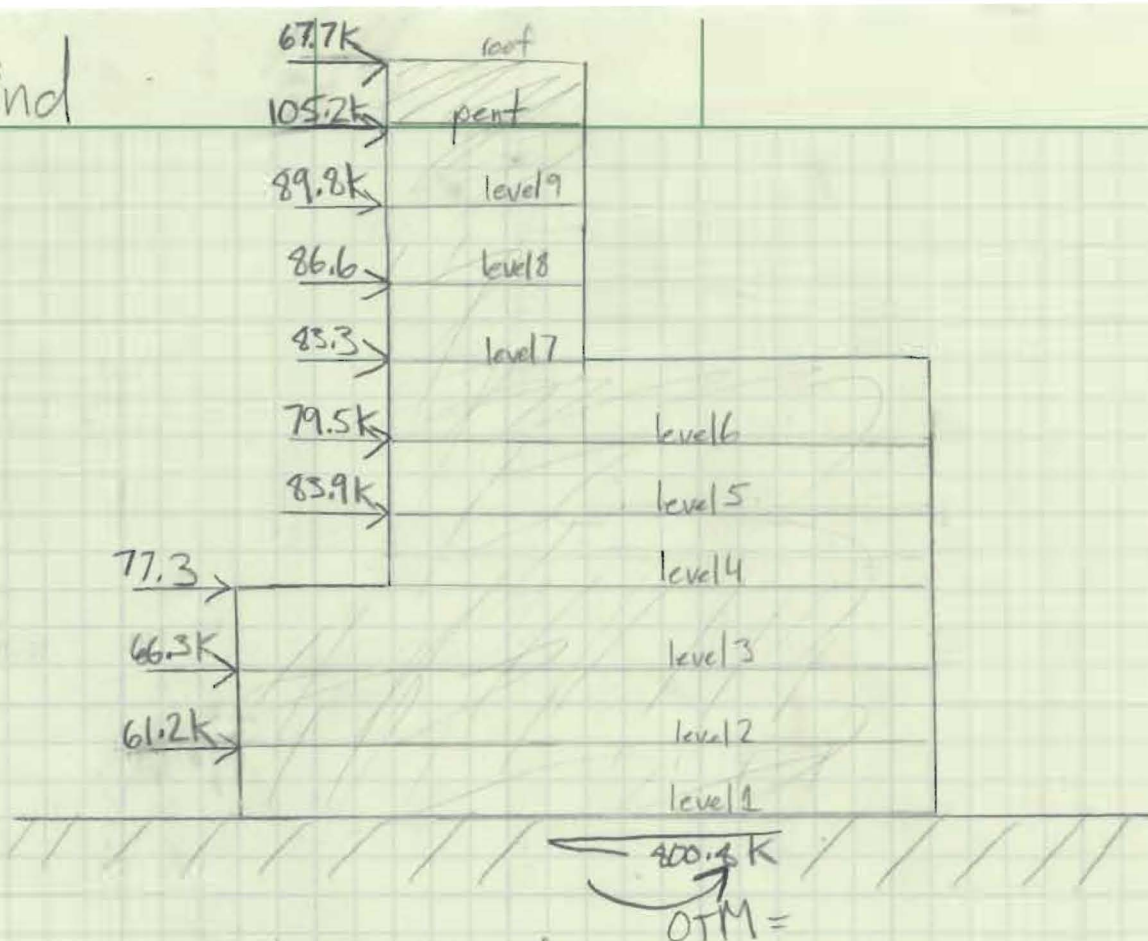 ind
67.7K roof
105.2K pent
89.8K level 9
86.6 level 8
83.3 level 7
79.5K level 6
83.9K level 5
77.3 level 4
66.3K level 3
61.2K level 2
level 1
800.8 K
OTM =